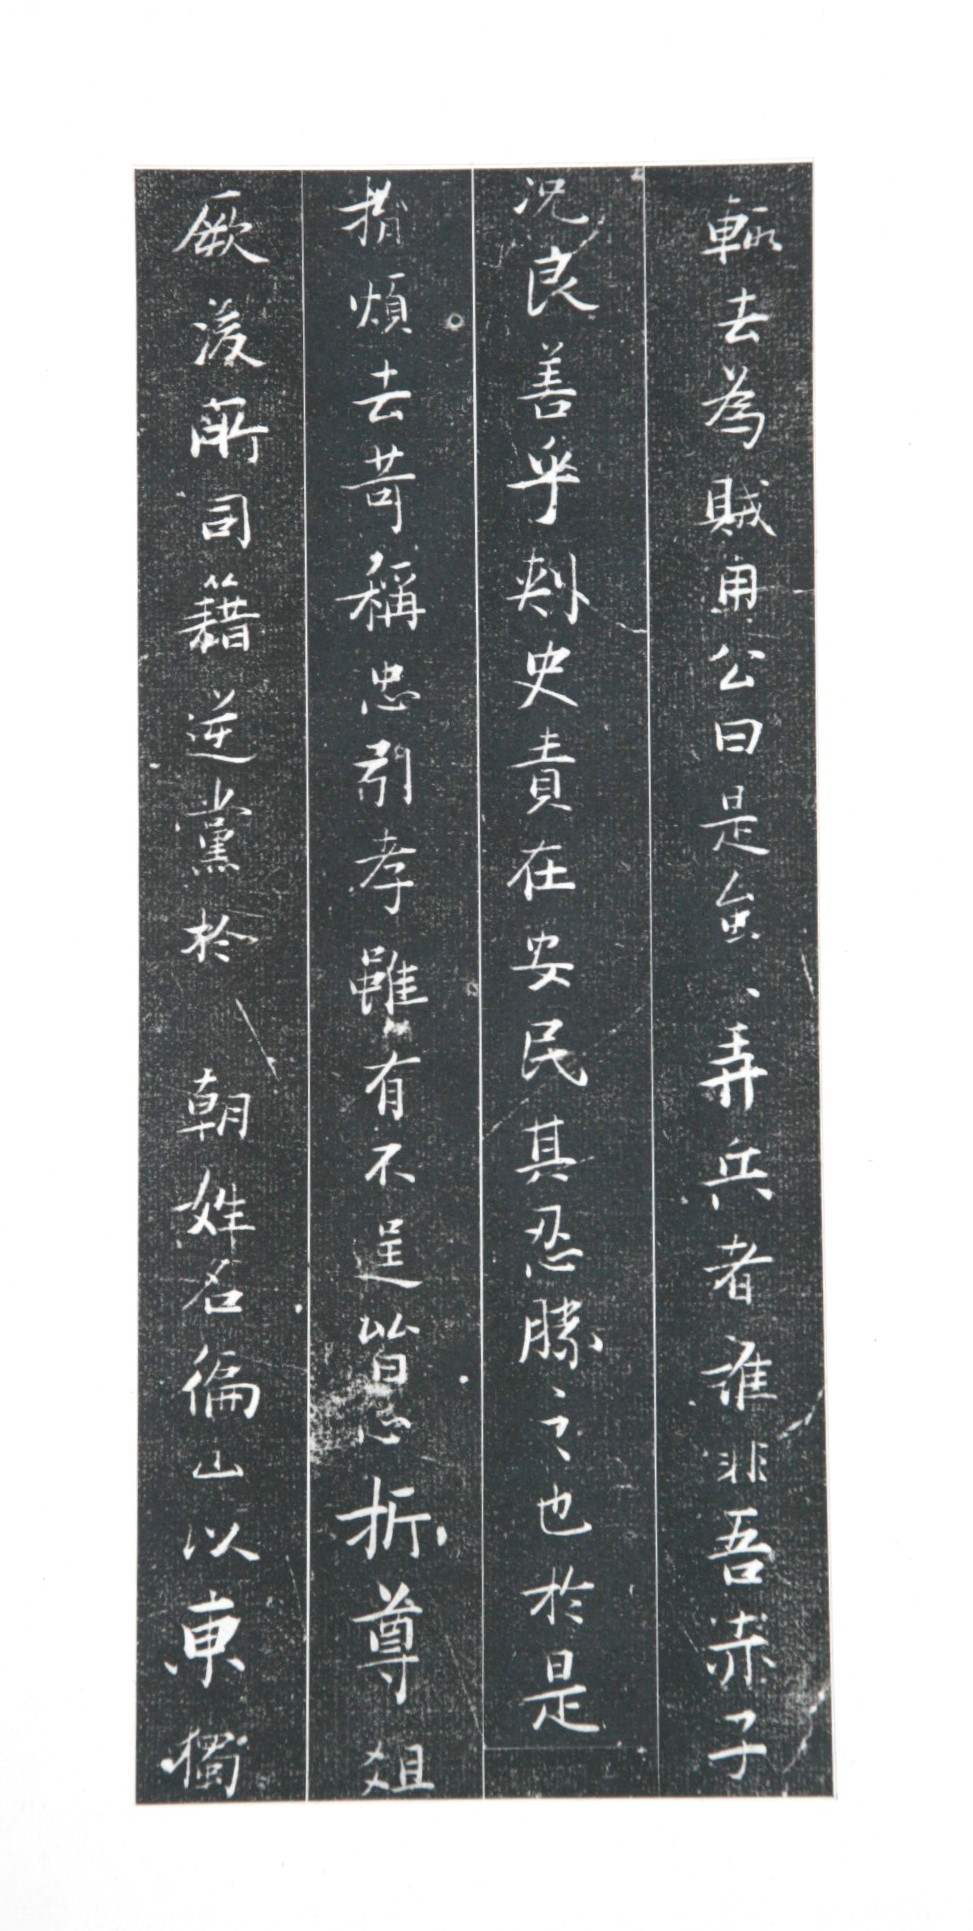 輙去為賊用公曰是蚩、弄兵者誰非吾赤子
况良善乎刾史責在安民其忍勝之也於是
捐煩去苛稱忠引孝雖有不逞皆心折尊俎
厥後所司籍逆黨於 朝姓名徧山以東獨